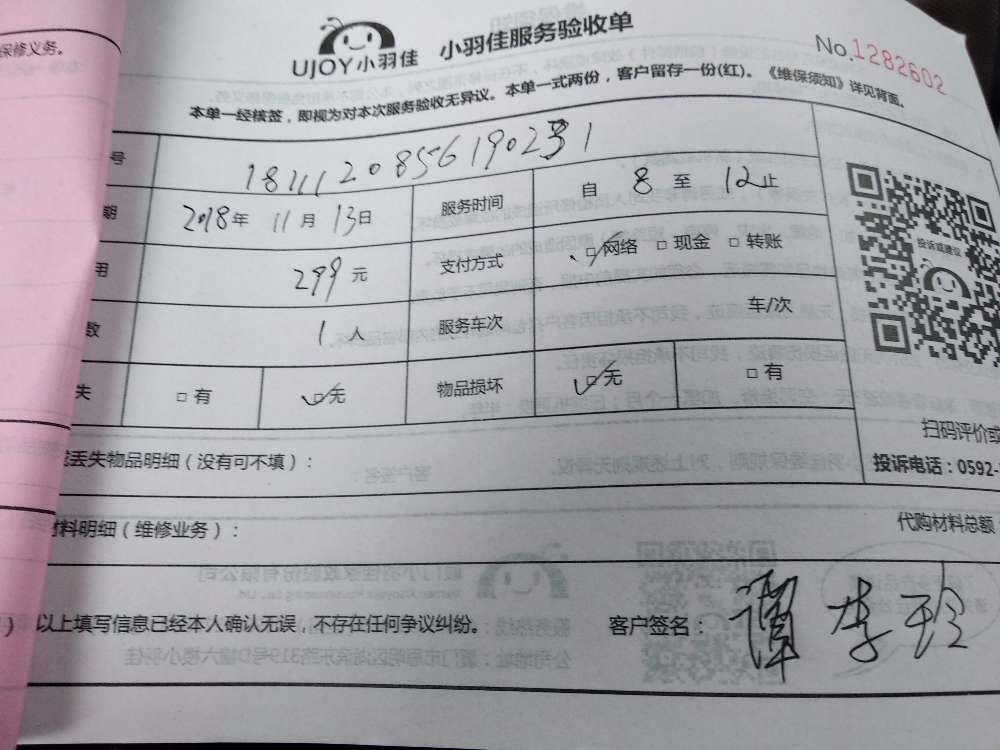 保修义务。
UJOY小羽佳 小羽佳服务验收单
No.1282602
本单一经核签，即视为对本次服务验收无异议。本单一式两份，客户留存一份(红)。《维保须知》详见背面。
号
期 2018年 11月 13日 服务时间 自 8 至 12止
用 299元 支付方式 网络 □ 现金 □ 转账
数 1人 服务车次 车/次
失 □ 有 无 物品损坏 无 □ 有
投诉或建议
扫码评价或
投诉电话：0592-
丢失物品明细（没有可不填）：
材料明细（维修业务）：
代购材料总额
以上填写信息已经本人确认无误，不存在任何争议纠纷。 客户签名：